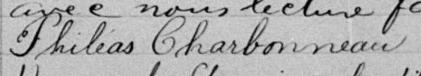 avec nous lecture fa
Philéas Charbonneau